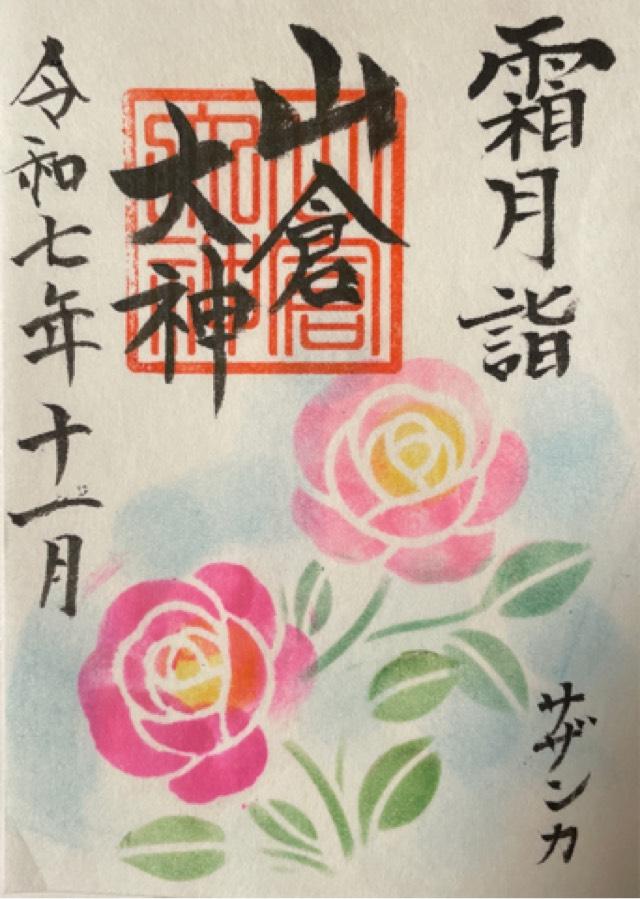 霜月詣
山倉
大神
令和七年十一月
サザンカ